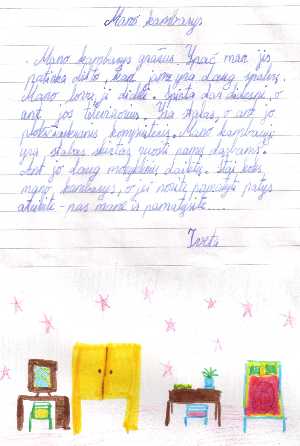 Mano kambarys
Mano kambarys gražus. Ypač man jis
patinka dėl to, kad jame yra daug spalvų.
Mano lova ji didelė. Spinta dar didesnė, o
ant jos televizorius. Yra stalas, o ant jo
kompiuteris. Mano kambaryje
yra stalas skirtas ruošti namų darbams.
Ant jo daug mokyklinių daiktų. Štai koks
mano kambarys, o jei norite pamatyti patys
ateikite pas mane ir pamatysite...
Iveta